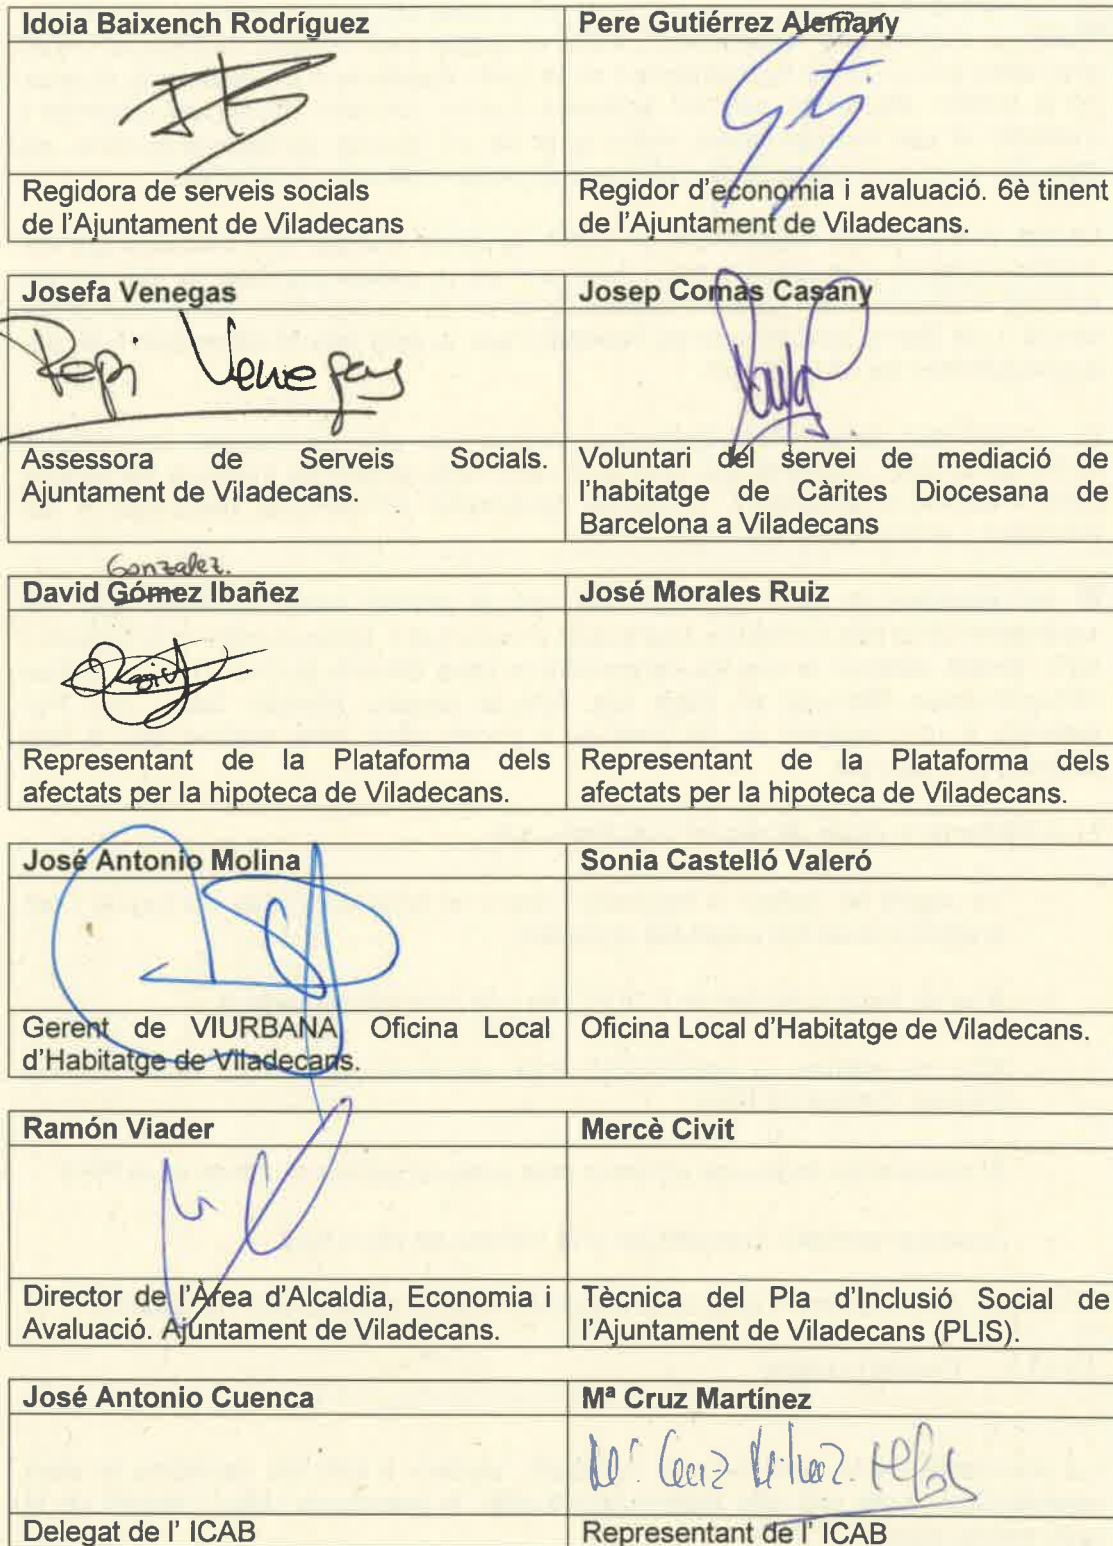 Idoia Baixench Rodríguez
Pere Gutiérrez Alemany
Regidora de serveis socials
de l'Ajuntament de Viladecans
Regidor d'economia i avaluació. 6è tinent
de l'Ajuntament de Viladecans.
Josefa Venegas
Josep Comas Casany
Pepi Venegas
Assessora de Serveis Socials.
Ajuntament de Viladecans.
Voluntari del servei de mediació de
l'habitatge de Càrites Diocesana de
Barcelona a Viladecans
Gonzalez.
David Gómez Ibañez
José Morales Ruiz
Representant de la Plataforma dels
afectats per la hipoteca de Viladecans.
Representant de la Plataforma dels
afectats per la hipoteca de Viladecans.
José Antonio Molina
Sonia Castelló Valeró
Gerent de VIURBANA Oficina Local
d'Habitatge de Viladecans.
Oficina Local d'Habitatge de Viladecans.
Ramón Viader
Mercè Civit
Director de l'Àrea d'Alcaldia, Economia i
Avaluació. Ajuntament de Viladecans.
Tècnica del Pla d'Inclusió Social de
l'Ajuntament de Viladecans (PLIS).
José Antonio Cuenca
Mª Cruz Martínez
Delegat de l' ICAB
Representant de l' ICAB